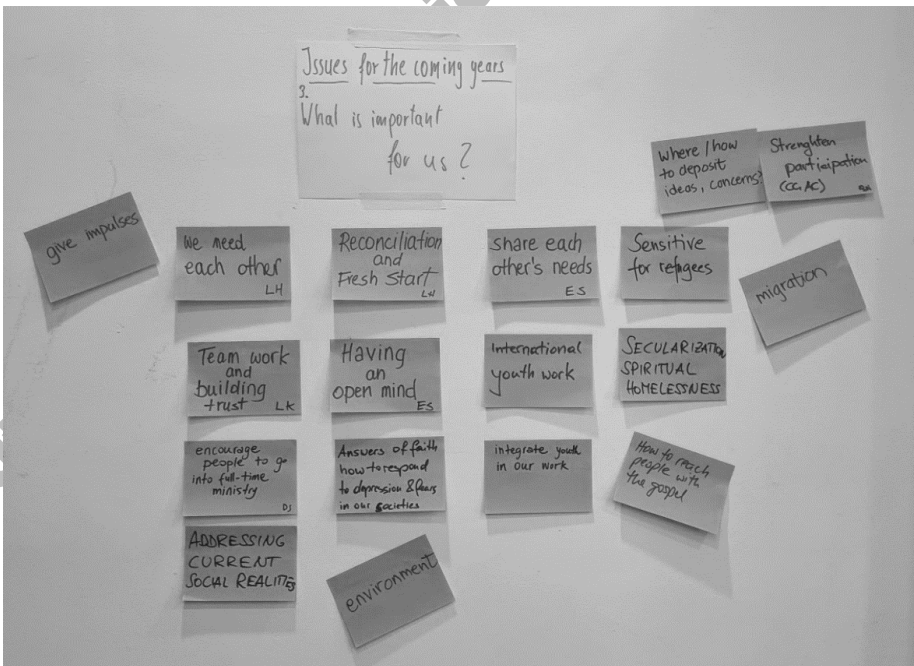 Issues for the coming years
3.
What is important
for us?
where / how
to deposit
ideas, concerns?
Strenghten
participation
(CC, AC)
give impulses
We need
each other
LH
Reconciliation
and
Fresh Start
share each
other's needs
ES
Sensitive
for refugees
migration
Team work
and
building
trust LK
Having
an
open mind
ES
International
youth work
SECULARIZATION
SPIRITUAL
HOMELESSNESS
encourage
people to go
into full-time
ministry
DJ
Answers of faith
how to respond
to depression & fears
in our societies
integrate youth
in our work
How to reach
people with
the gospel
ADDRESSING
CURRENT
SOCIAL REALITIES
environment